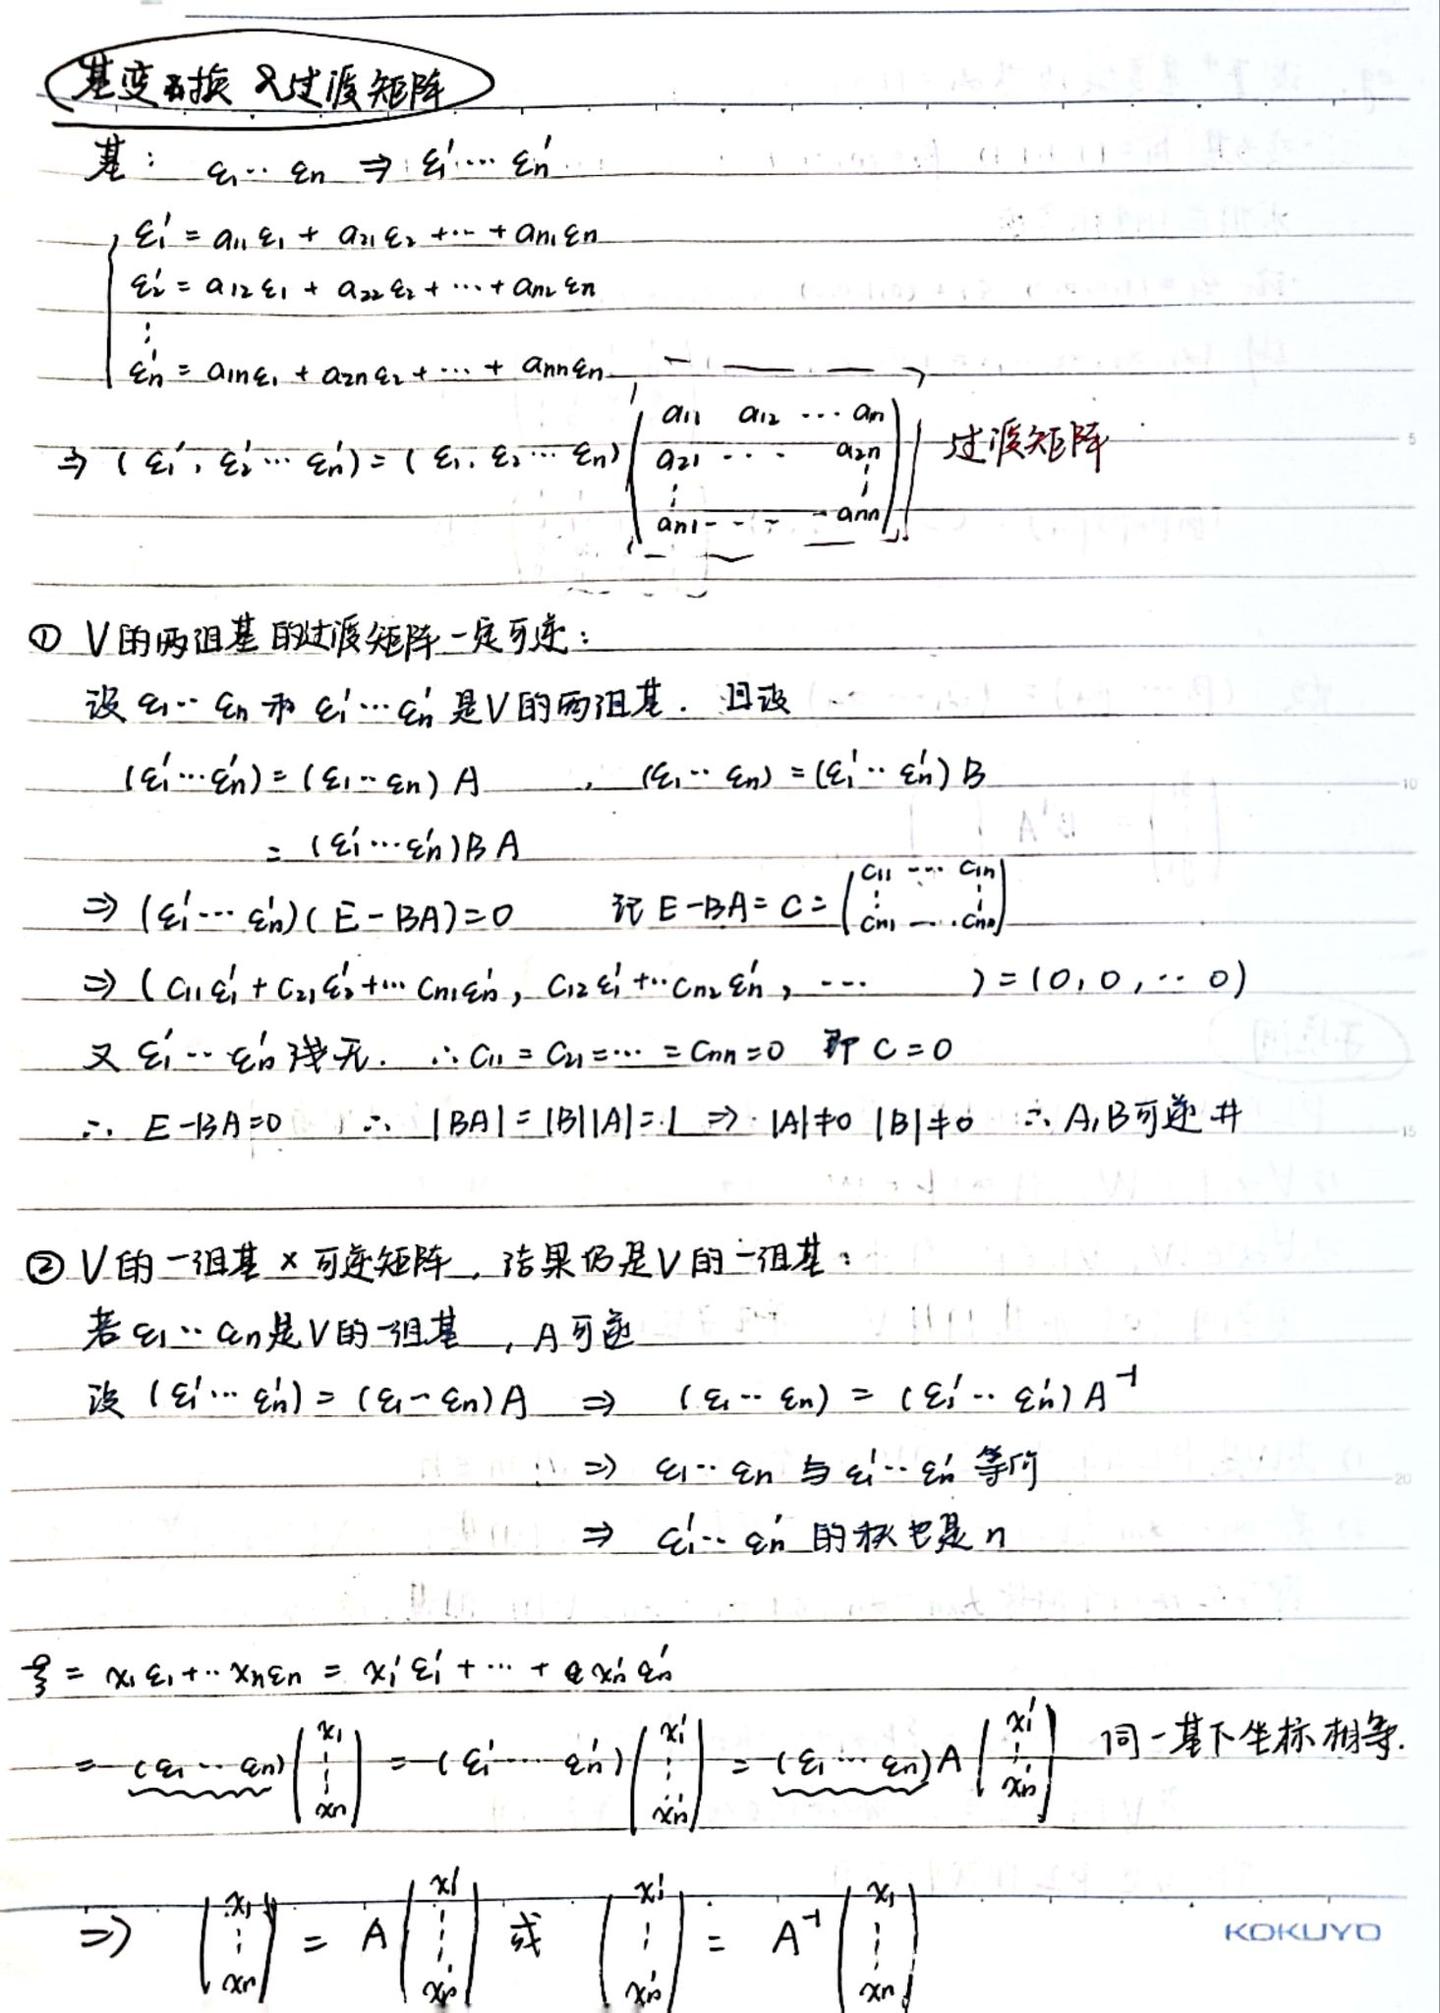 基变换 & 过渡矩阵
基: ε₁ ·· εₙ ⇒ ε₁′ ··· εₙ′
ε₁′ = a₁₁ε₁ + a₂₁ε₂ + ··· + aₙ₁εₙ
ε₂′ = a₁₂ε₁ + a₂₂ε₂ + ··· + aₙ₂εₙ
⋮
εₙ′ = a₁ₙε₁ + a₂ₙε₂ + ··· + aₙₙεₙ
⇒ (ε₁′, ε₂′ ··· εₙ′) = (ε₁, ε₂ ··· εₙ) ( a₁₁ a₁₂ ··· aₙ ; a₂₁ ··· a₂ₙ ; ⋮ ⋮ ; aₙ₁ ··· aₙₙ ) 过渡矩阵
① V的两组基的过渡矩阵一定可逆:
设 ε₁ ·· εₙ 和 ε₁′ ··· εₙ′ 是V的两组基. 且设
(ε₁′ ··· εₙ′) = (ε₁ ·· εₙ) A , (ε₁ ·· εₙ) = (ε₁′ ·· εₙ′) B
= (ε₁′ ··· εₙ′) B A
⇒ (ε₁′ ··· εₙ′)(E - BA) = 0 记 E - BA = C = ( c₁₁ ··· c₁ₙ ; ⋮ ⋮ ; cₙ₁ ··· cₙₙ )
⇒ (c₁₁ε₁′ + c₂₁ε₂′ + ··· cₙ₁εₙ′, c₁₂ε₁′ + ·· cₙ₂εₙ′, ··· ) = (0, 0, ·· 0)
又 ε₁′ ·· εₙ′ 线无. ∴ c₁₁ = c₂₁ = ··· = cₙₙ = 0 即 C = 0
∴ E - BA = 0 ∴ |BA| = |B||A| = 1 ⇒ |A| ≠ 0 |B| ≠ 0 ∴ A, B可逆 #
② V的一组基 × 可逆矩阵, 结果仍是V的一组基:
若 ε₁ ·· εₙ 是V的一组基, A可逆
设 (ε₁′ ··· εₙ′) = (ε₁ ·· εₙ) A ⇒ (ε₁ ·· εₙ) = (ε₁′ ·· εₙ′) A⁻¹
⇒ ε₁ ·· εₙ 与 ε₁′ ·· εₙ′ 等价
⇒ ε₁′ ·· εₙ′ 的秩也是 n
ξ = x₁ε₁ + ·· xₙεₙ = x₁′ε₁′ + ··· + xₙ′εₙ′
= (ε₁ ·· εₙ) ( x₁ ; ⋮ ; xₙ ) = (ε₁′ ···· εₙ′) ( x₁′ ; ⋮ ; xₙ′ ) = (ε₁ ··· εₙ) A ( x₁′ ; ⋮ ; xₙ′ ) 同一基下坐标相等.
⇒ ( x₁ ; ⋮ ; xₙ ) = A ( x₁′ ; ⋮ ; xₙ′ ) 或 ( x₁′ ; ⋮ ; xₙ′ ) = A⁻¹ ( x₁ ; ⋮ ; xₙ )
KOKUYO
5
10
15
20